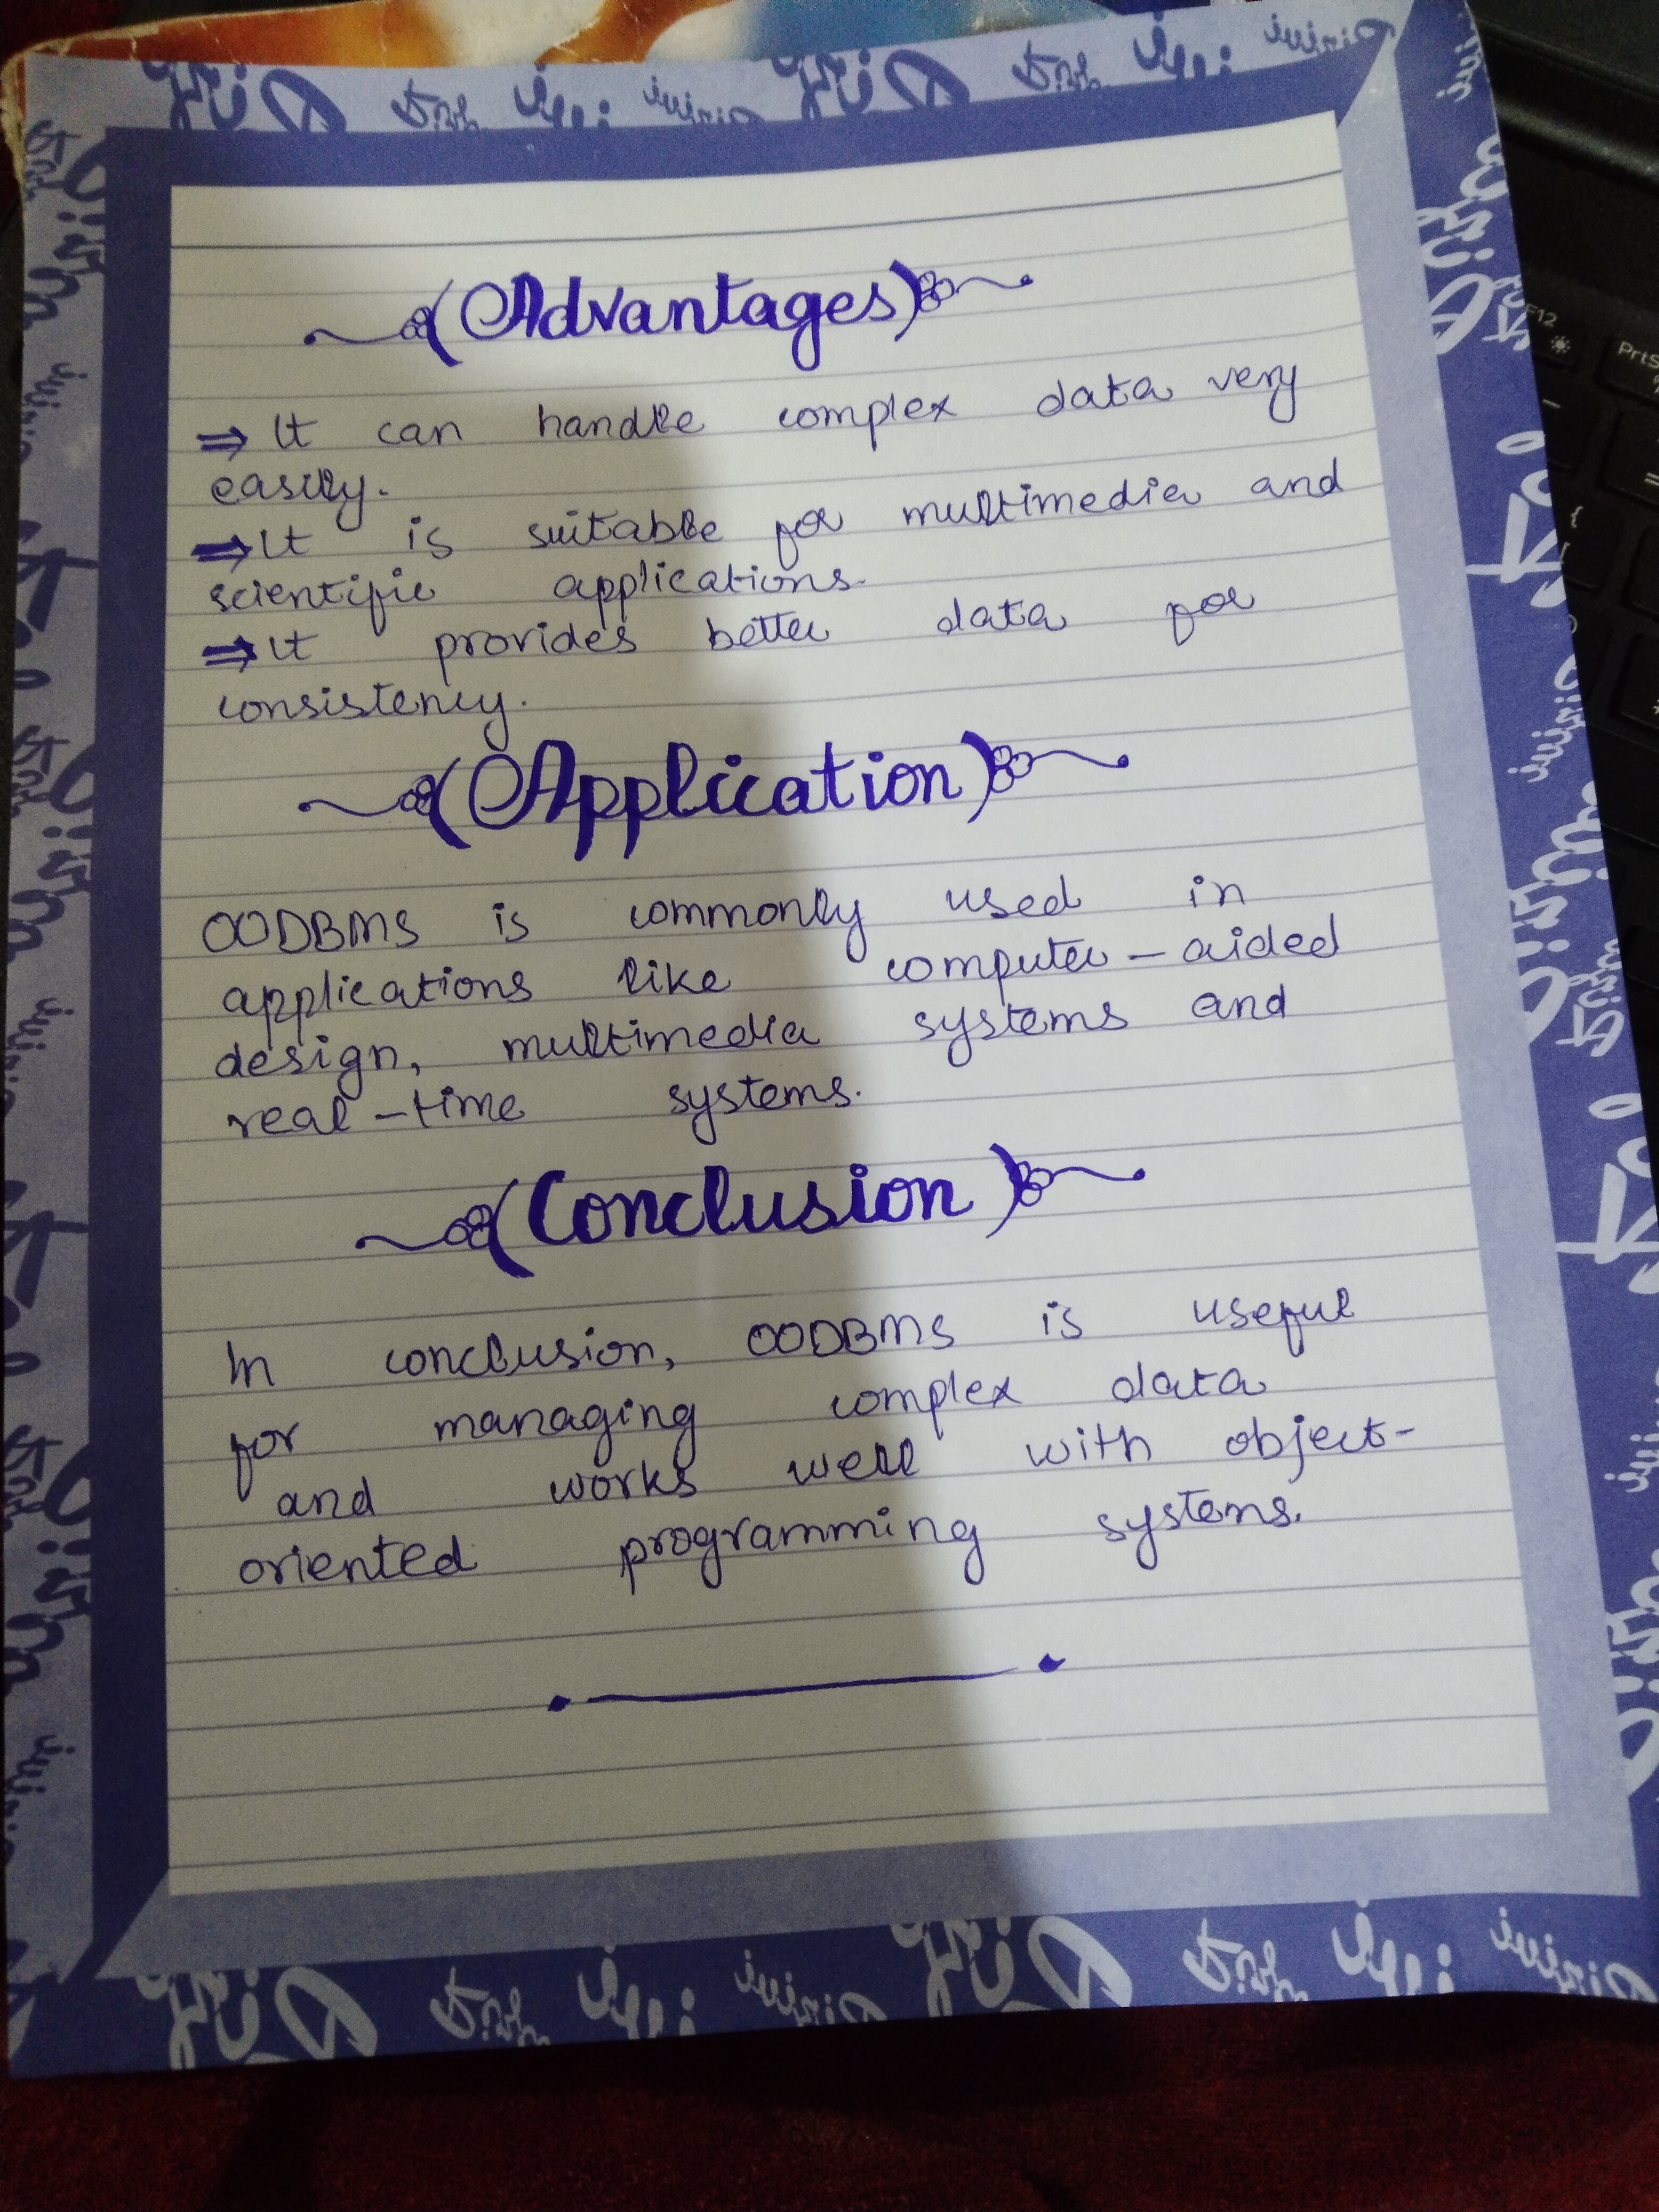 (Advantages)
⇒ It can handle complex data very
easily.
⇒ It is suitable for multimedia and
scientific applications.
⇒ It provides better data for
consistency.
(Application)
OODBMS is commonly used in
applications like computer-aided
design, multimedia systems and
real-time systems.
(Conclusion)
In conclusion, OODBMS is useful
for managing complex data
and works well with object-
oriented programming systems.
F12
PrtS